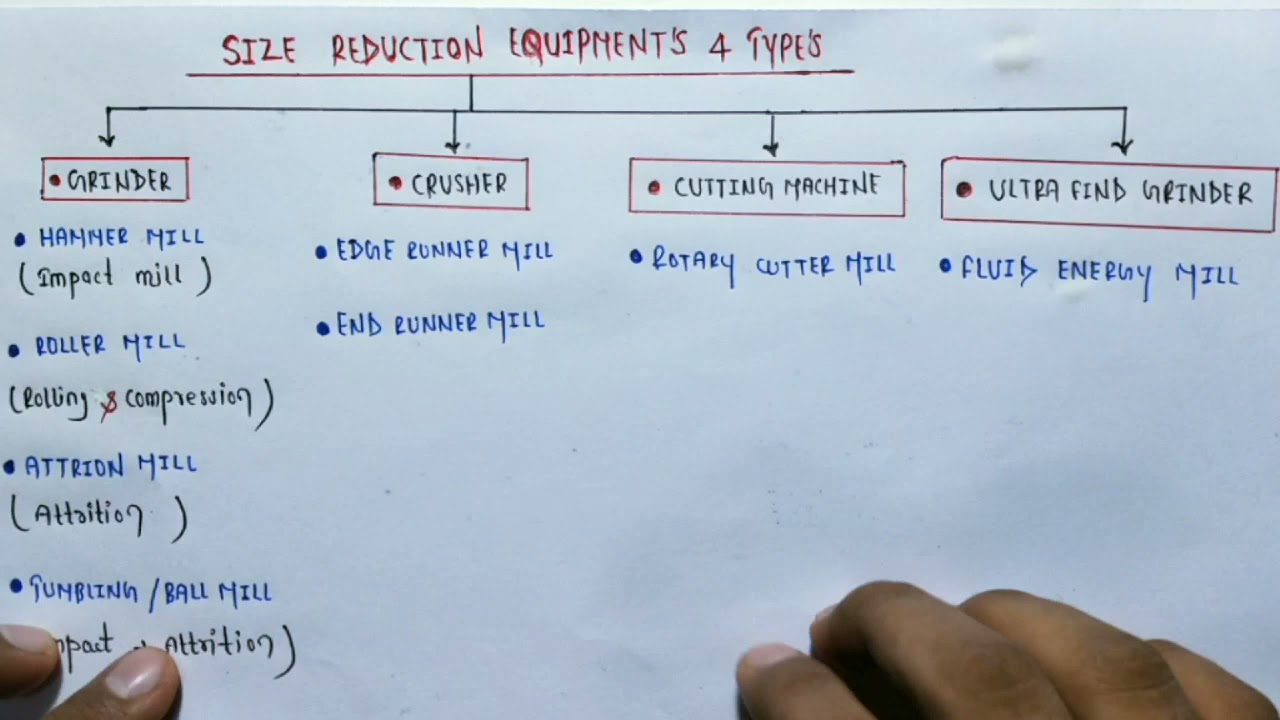 SIZE REDUCTION EQUIPMENT'S 4 TYPE'S
• GRINDER
• HAMMER MILL
(Impact mill)
• ROLLER MILL
(Rolling & compression)
• ATTRION MILL
(Attrition)
• TUMBLING / BALL MILL
Attrition)
• CRUSHER
• EDGE RUNNER MILL
• END RUNNER MILL
• CUTTING MACHINE
• ROTARY CUTTER MILL
• ULTRA FIND GRINDER
• FLUID ENERGY MILL